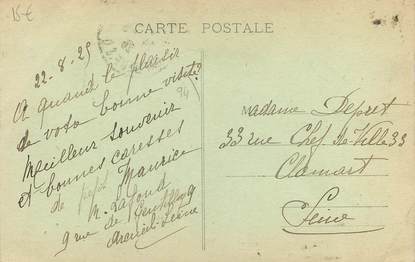 15€
CARTE POSTALE
22-8-25
A quand le plaisir
de voto bonne visite?
94
Meilleur souvenir
et bonnes caresses
de petit Maurice
M. Lafond
9 rue de Gentilly 9
Arcueil-Seine
Madame Depret
33 rue Chef de Ville 33
Clamart
Seine